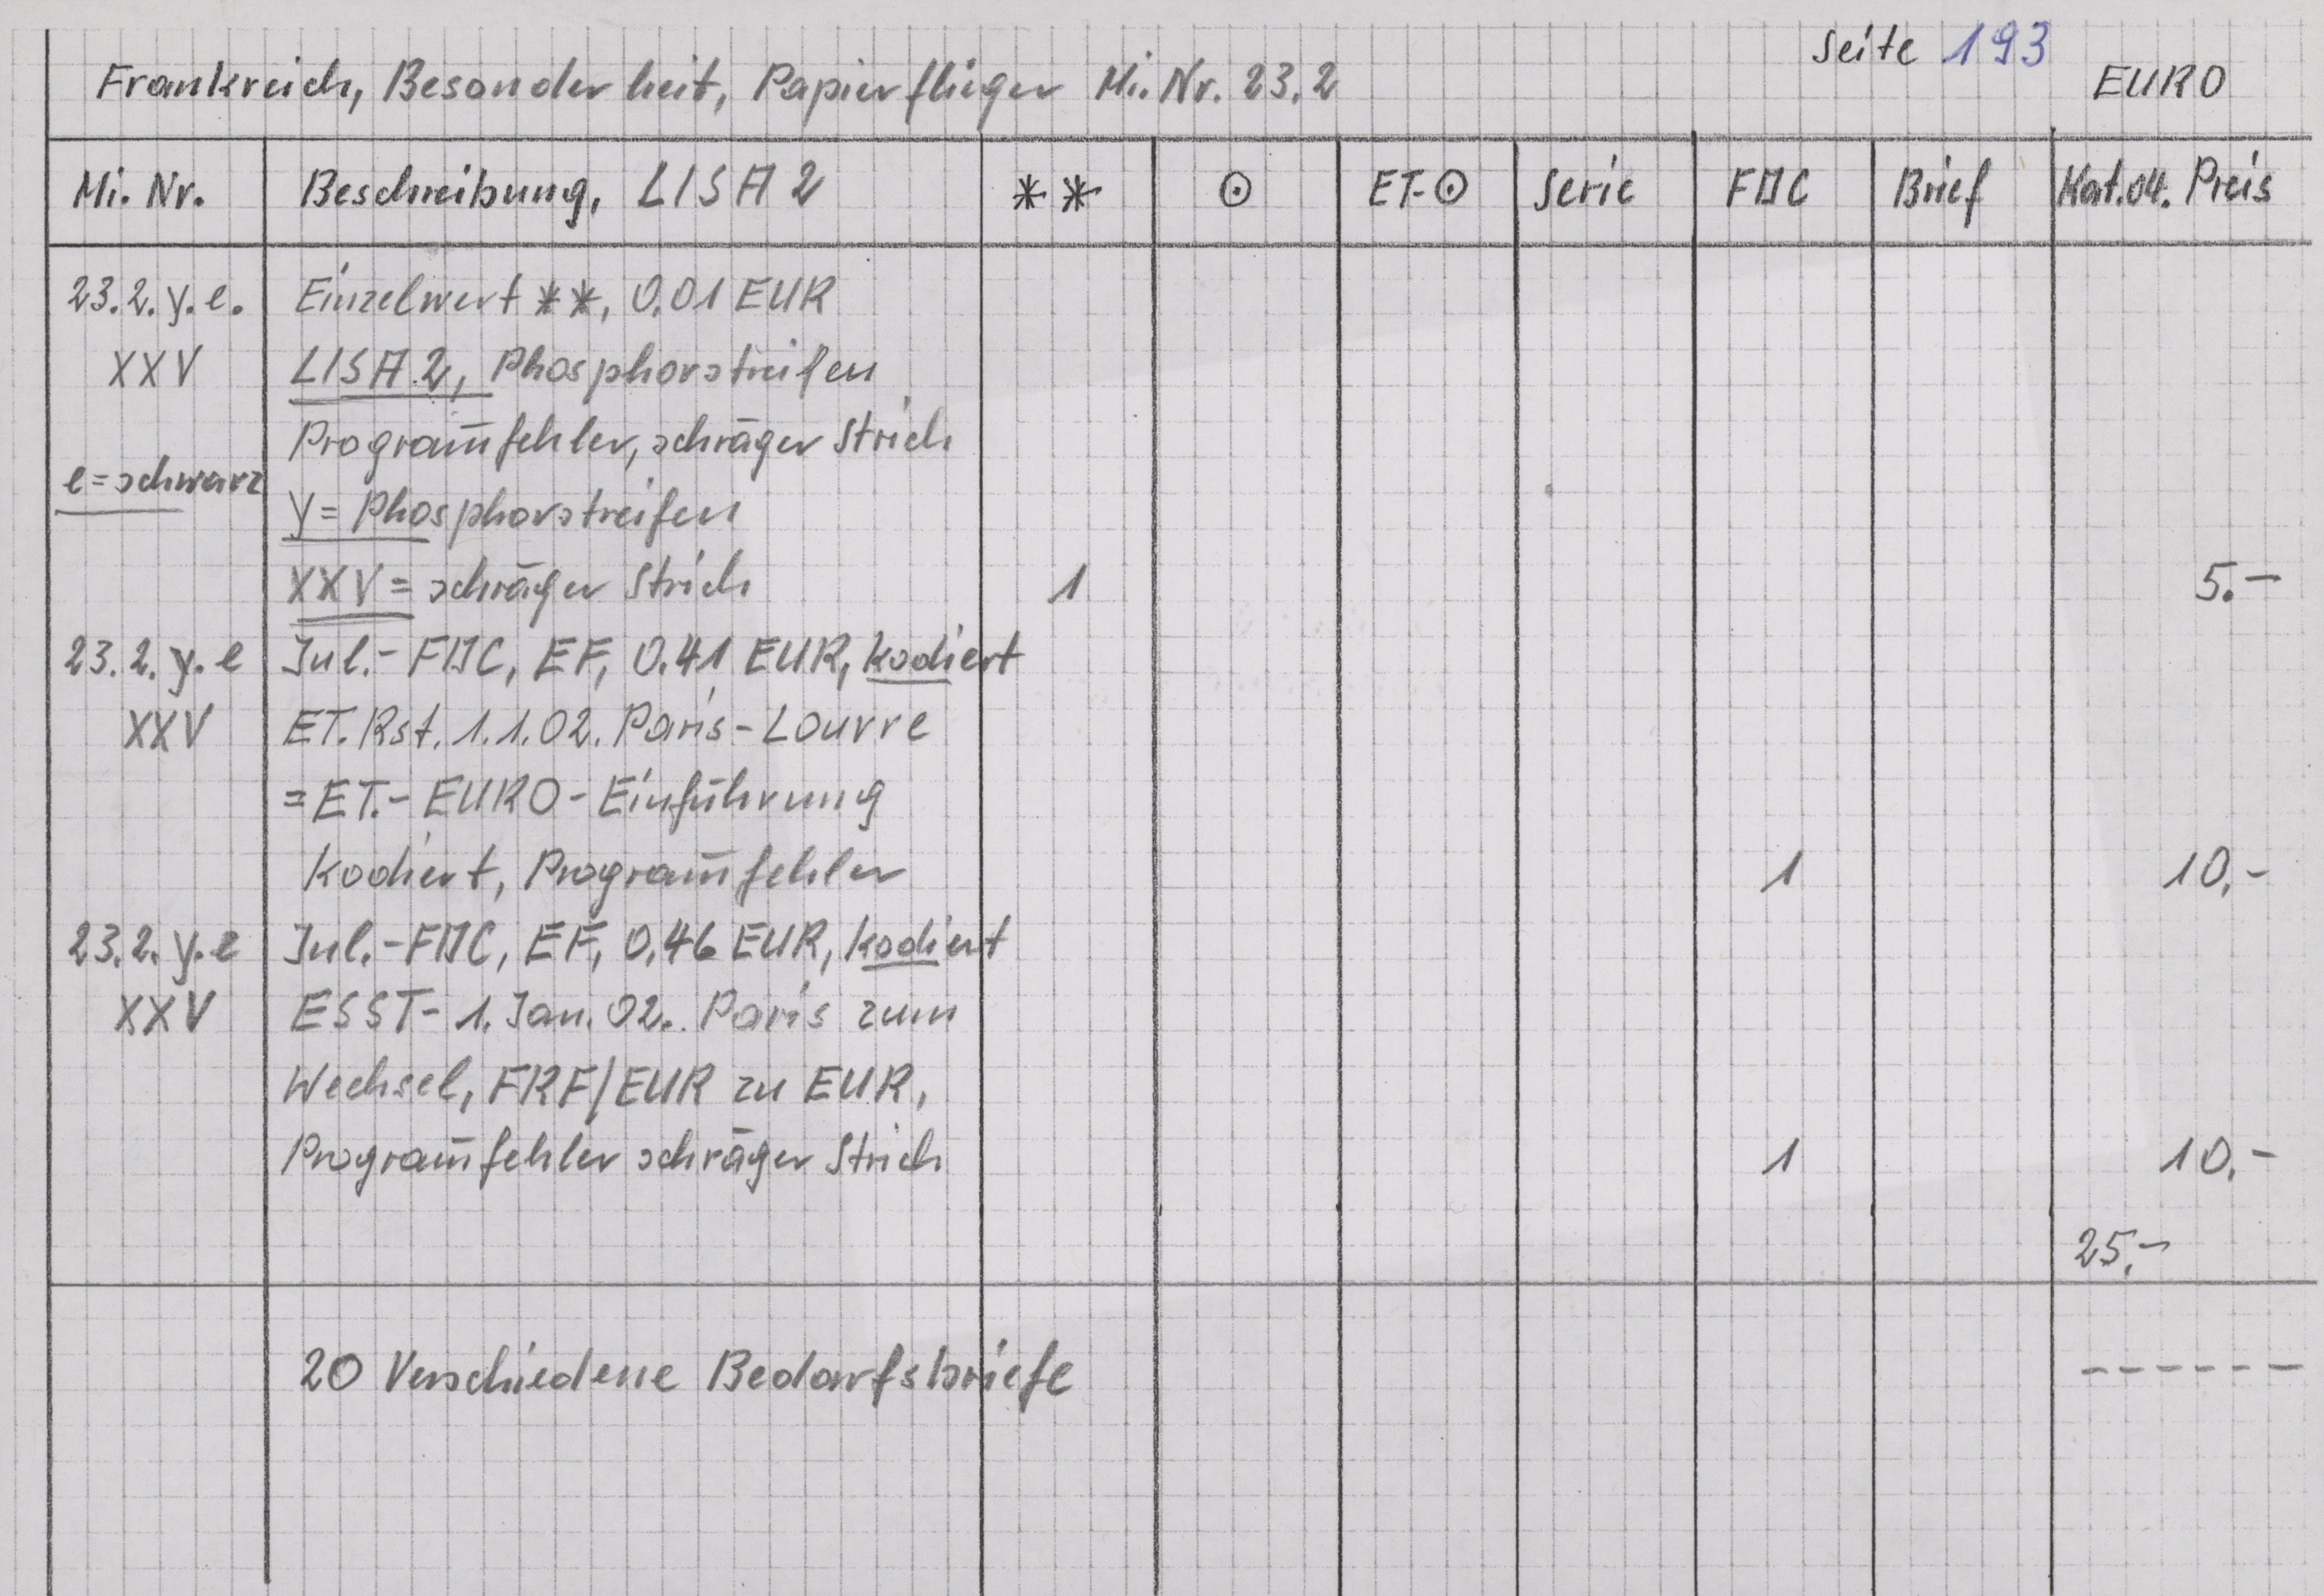 Seite 193
Frankreich, Besonderheit, Papierflieger Mi. Nr. 23.2 EURO
Mi. Nr. Beschreibung, LISA 2 ** ⊙ ET-⊙ Serie FDC Brief Kat.04. Preis
23.2.y.e. Einzelwert **, 0.01 EUR
XXV LISA 2, Phosphorstreifen
Programm̄fehler, schräger Strich
e=schwarz
y= Phosphorstreifen
XXV= schräger Strich 1 5.-
23.2.y.e Jul.-FDC, EF, 0.41 EUR, kodiert
XXV ET. Rst. 1.1.02. Paris-Louvre
=ET.-EURO-Einführung
Kodiert, Program̄fehler 1 10,-
23.2.y.e Jul.-FDC, EF, 0,46 EUR, kodiert
XXV ESST- 1. Jan. 02. Paris zum
Wechsel, FRF/EUR zu EUR,
Program̄fehler schräger Strich 1 10.-
25,-
20 Verschiedene Bedarfsbriefe ------